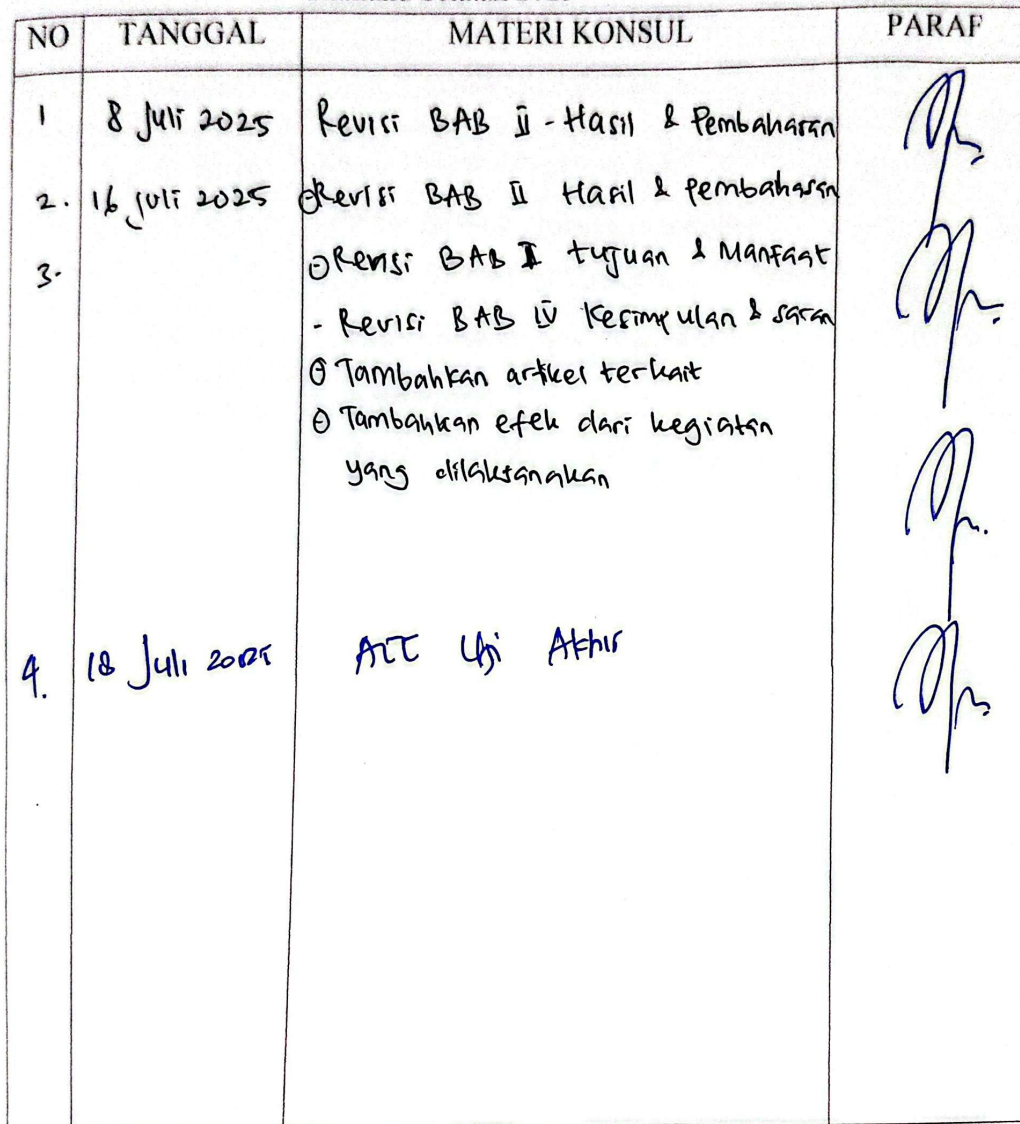 NO TANGGAL MATERI KONSUL PARAF
1 8 Juli 2025 Revisi BAB II - Hasil & Pembahasan
2. 16 Juli 2025 Revisi BAB II Hasil & pembahasan
3. Revisi BAB I tujuan & Manfaat
- Revisi BAB IV Kesimpulan & saran
Tambahkan artikel terkait
Tambahkan efek dari kegiatan
yang dilaksanakan
4. 18 Juli 2025 ACC Uji Akhir